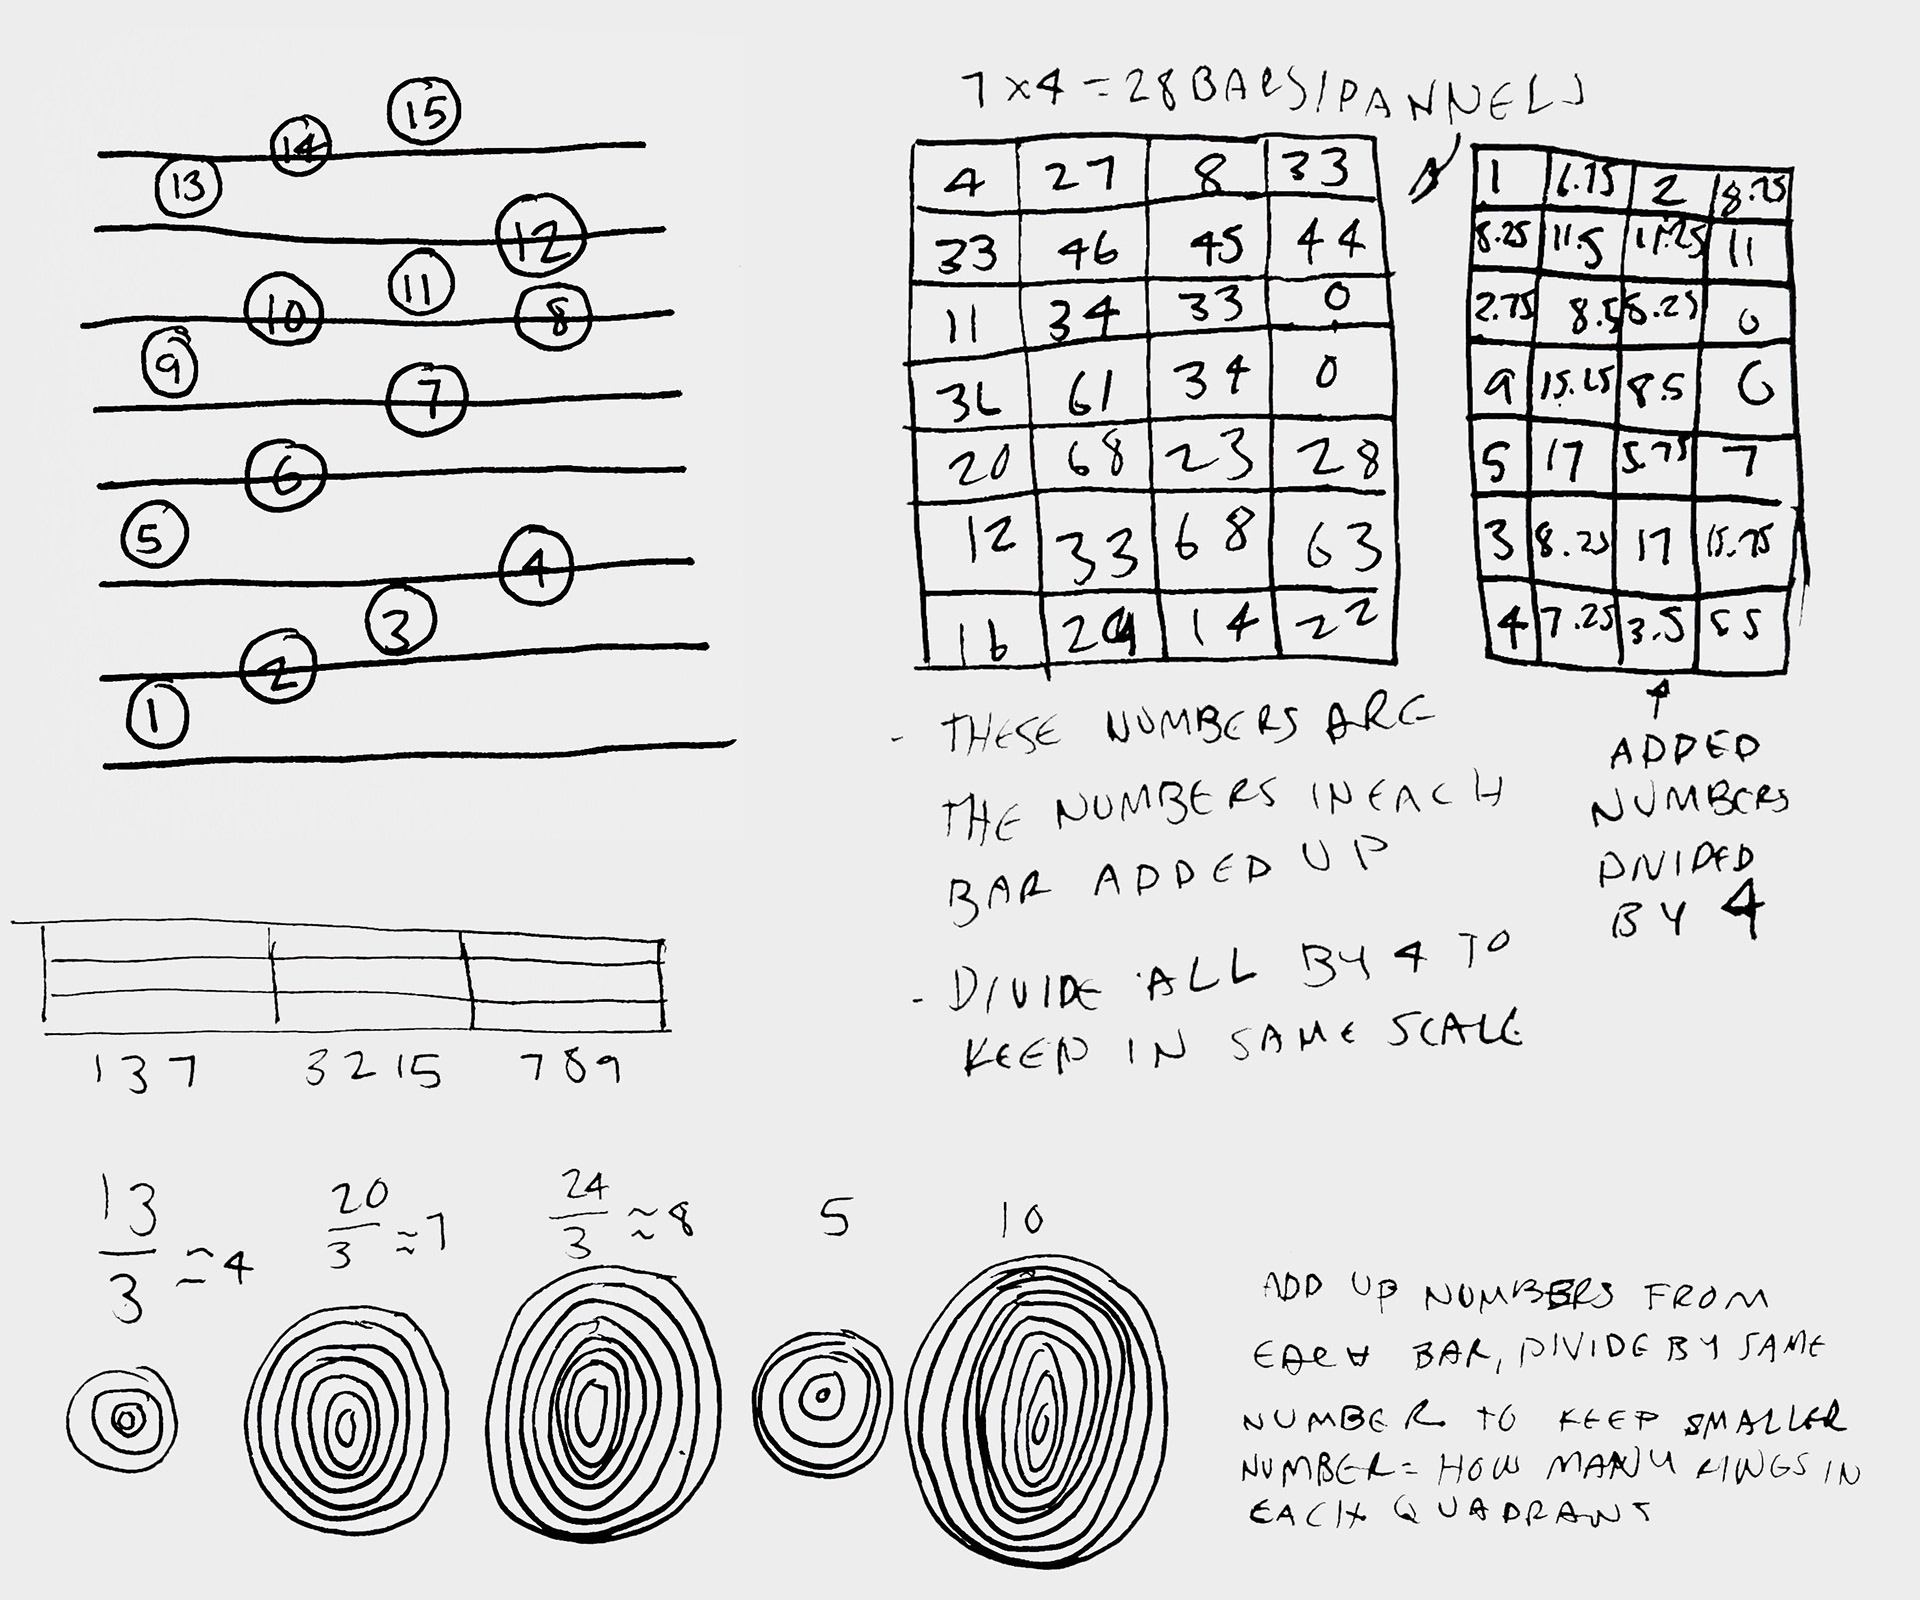 15
14
13
12
11
10
8
9
7
6
5
4
3
2
1
7 x 4 = 28 BARS/PANNELS
4 27 8 33
33 46 45 44
11 34 33 0
36 61 34 0
20 68 23 28
12 33 68 63
16 29 14 22
1 6.75 2 8.25
8.25 11.5 11.25 11
2.75 8.5 8.25 0
9 15.25 8.5 0
5 17 5.75 7
3 8.25 17 15.75
4 7.25 3.5 5.5
- THESE NUMBERS ARE
THE NUMBERS IN EACH
BAR ADDED UP
- DIVIDE ALL BY 4 TO
KEEP IN SAME SCALE
ADDED
NUMBERS
DIVIDED
BY 4
1 3 7 3 2 15 7 8 9
13/3 ≈ 4 20/3 ≈ 7 24/3 ≈ 8 5 10
ADD UP NUMBERS FROM
EACH BAR, DIVIDE BY SAME
NUMBER TO KEEP SMALLER
NUMBER = HOW MANY RINGS IN
EACH QUADRANT